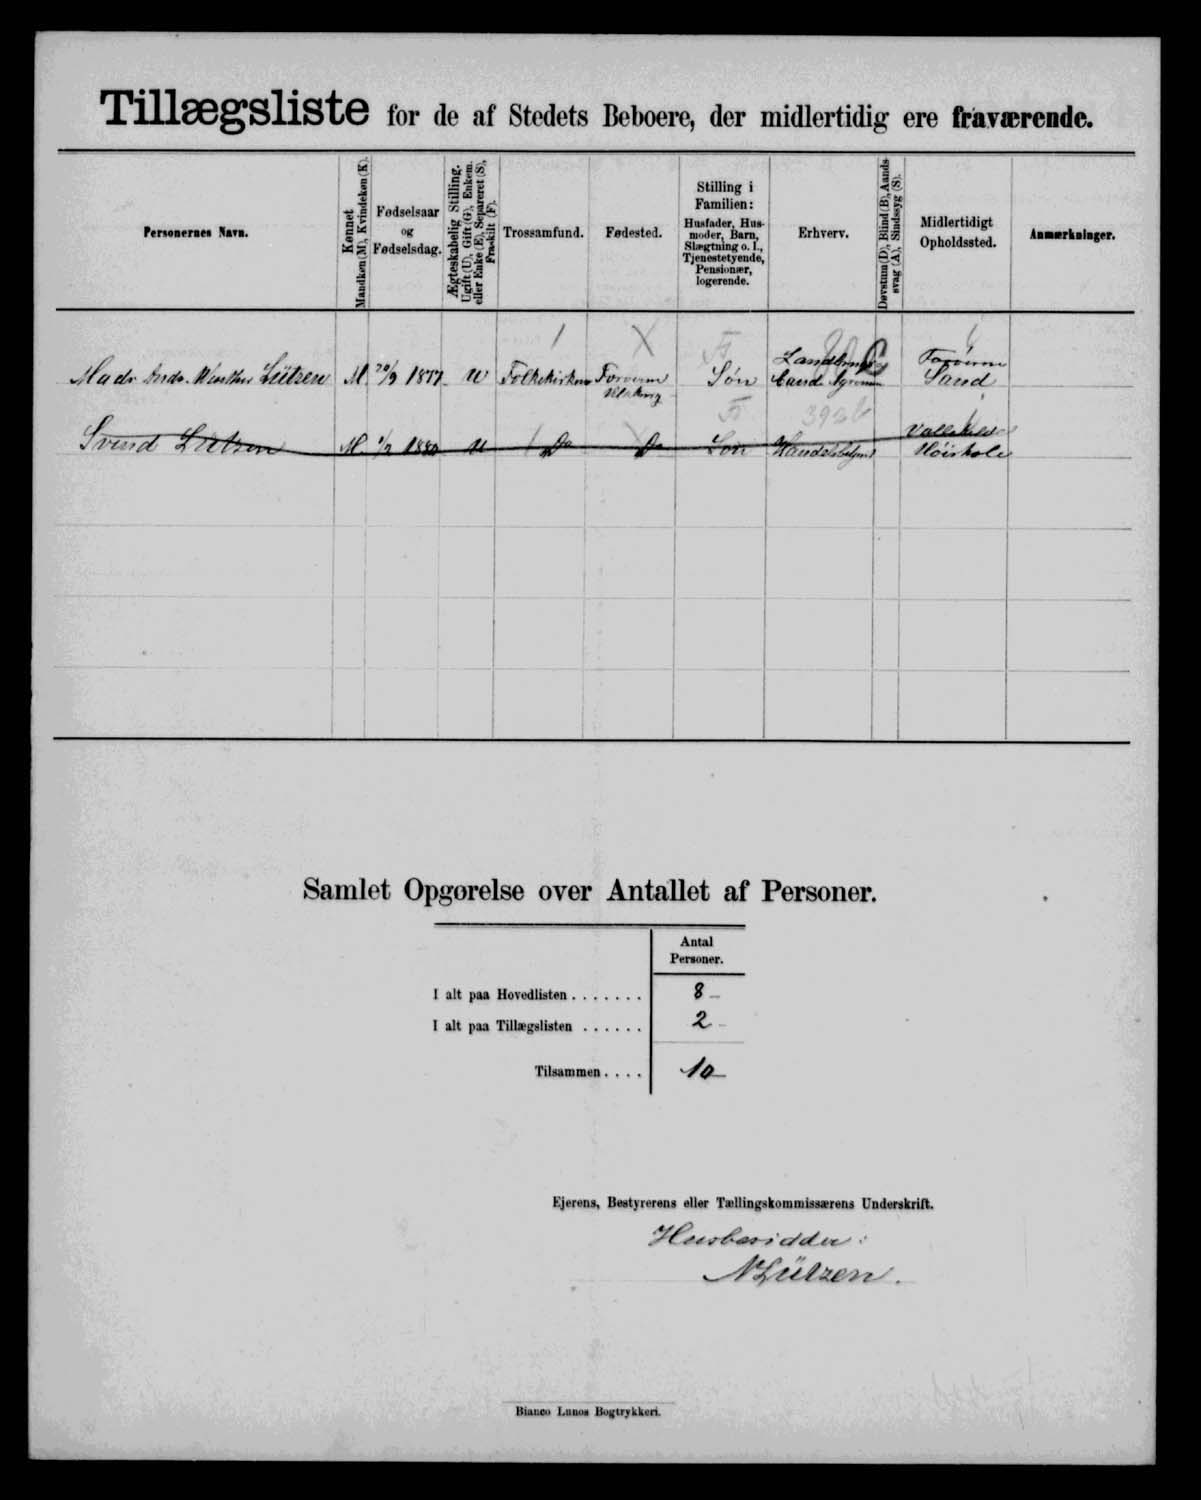 Tillægsliste for de af Stedets Beboere, der midlertidig ere fraværende.
Personernes Navn.
Kønnet
Mandkøn (M), Kvindekøn (K).
Fødselsaar
og
Fødselsdag.
Ægteskabelig Stilling.
Ugift (U), Gift (G), Enkem.
eller Enke (E), Separeret (S),
Fraskilt (F).
Trossamfund.
Fødested.
Stilling i
Familien:
Husfader, Hus-
moder, Barn,
Slægtning o. l.,
Tjenestetyende,
Pensionær,
logerende.
Erhverv.
Døvstum (D), Blind (B), Aands-
svag (A), Sindssyg (S).
Midlertidigt
Opholdssted.
Anmærkninger.
Mads Lützen M. 20/9 1877 U Folkekirken Søn Cand. Sand
Svend Lützen M. U Do Do Søn
Højskole
392
Samlet Opgørelse over Antallet af Personer.
Antal
Personer.
I alt paa Hovedlisten . . . . . . . 8
I alt paa Tillægslisten . . . . . . 2
Tilsammen . . . . 10
Ejerens, Bestyrerens eller Tællingskommissærens Underskrift.
Husbesidder:
N Lützen.
Bianco Lunos Bogtrykkeri.